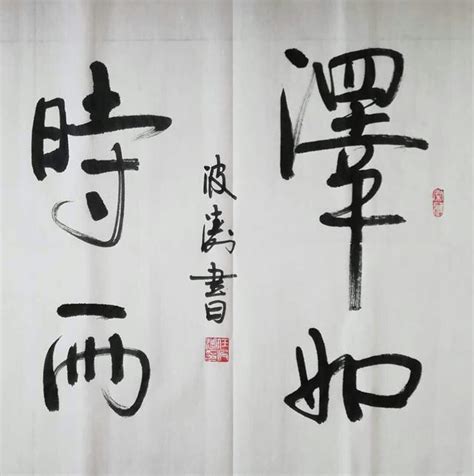 澤如
時雨
波濤書